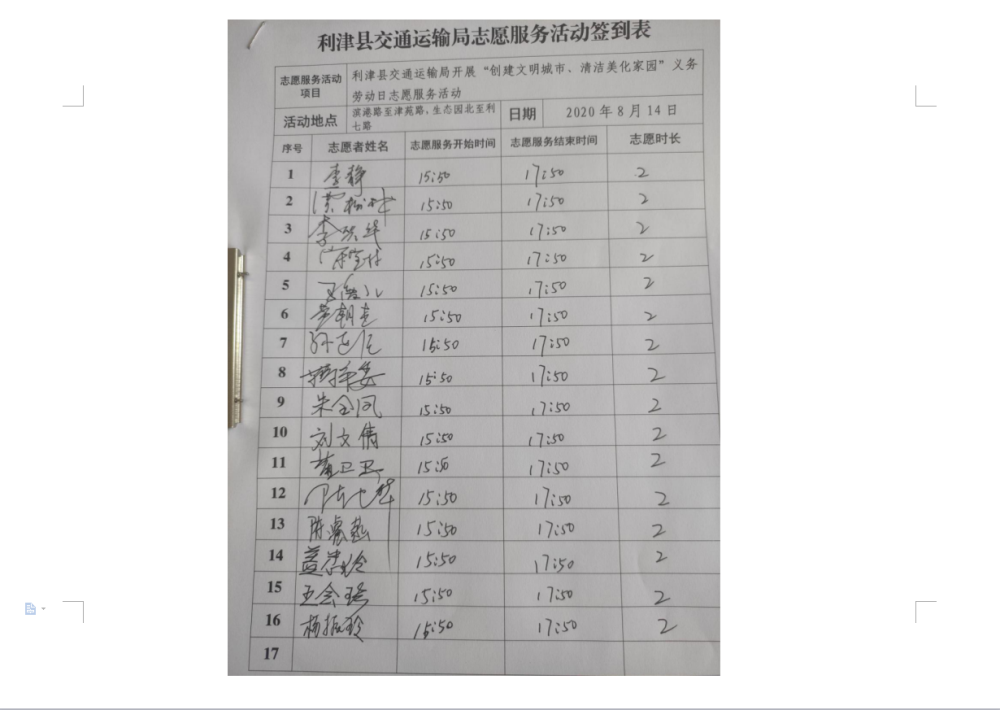 利津县交通运输局志愿服务活动签到表
志愿服务活动项目 利津县交通运输局开展“创建文明城市、清洁美化家园”义务
劳动日志愿服务活动
活动地点 滨港路至津苑路,生态园北至利七路 日期 2020年8月14日
序号 志愿者姓名 志愿服务开始时间 志愿服务结束时间 志愿时长
1 李静 15:50 17:50 2
2 15:50 17:50 2
3 李 15:50 17:50 2
4 15:50 17:50 2
5 15:50 17:50 2
6 15:50 17:50 2
7 15:50 17:50 2
8 15:50 17:50 2
9 朱全凤 15:50 17:50 2
10 刘文倩 15:50 17:50 2
11 15:50 17:50 2
12 15:50 17:50 2
13 15:50 17:50 2
14 15:50 17:50 2
15 15:50 17:50 2
16 杨振玲 15:50 17:50 2
17